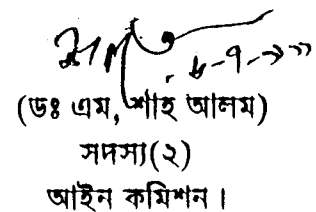 (ডঃ এম, শাহ আলম)
সদস্য(২)
আইন কমিশন।